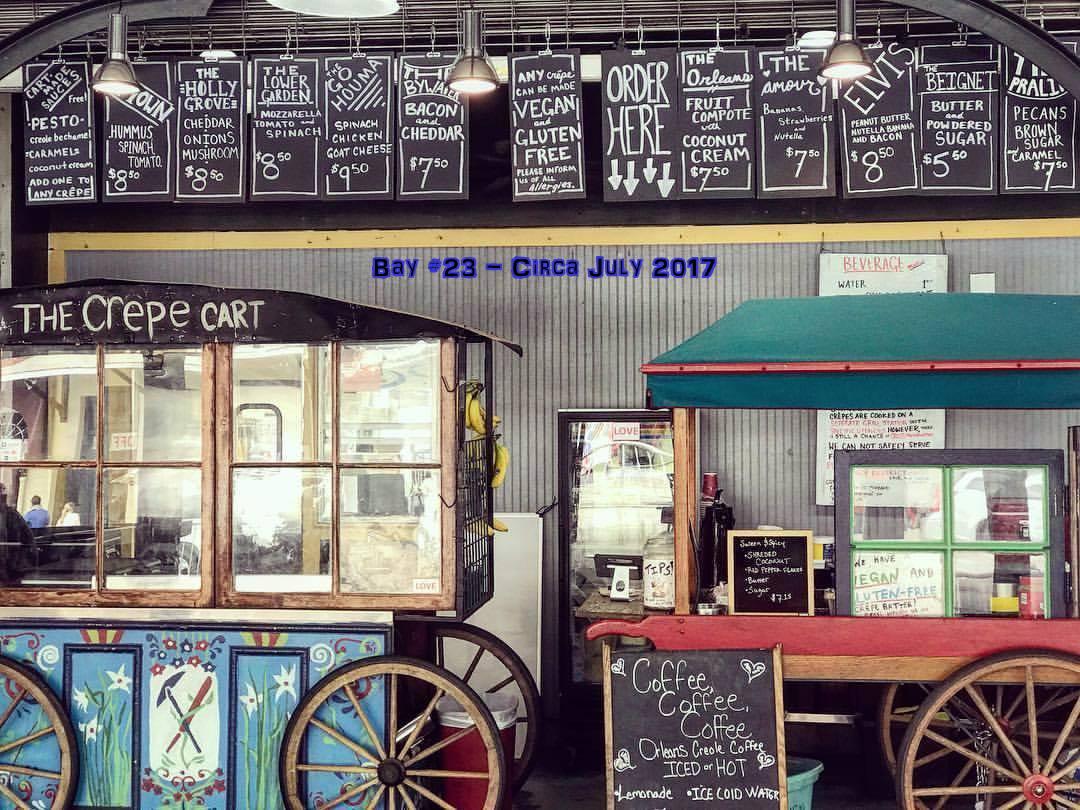 CART-MADE
SAUCES
Free!
-PESTO-
creole bechamel
CARAMELS
coconut cream
ADD ONE TO
ANY CRÊPE
TOWN
HUMMUS
SPINACH,
TOMATO.
$8.50
THE
HOLLY
GROVE
CHEDDAR
ONIONS
MUSHROOM
$8.50
THE
LOWER
GARDEN
MOZZARELLA
TOMATO and
SPINACH
$8.50
HOUMA
SPINACH
CHICKEN
GOAT CHEESE
$9.50
THE
BYWATER
BACON
and
CHEDDAR
$7.50
ANY crêpe
CAN BE MADE
VEGAN
and
GLUTEN
FREE
PLEASE INFORM
US OF ALL
Allergies.
ORDER
HERE
THE
Orleans
FRUIT
COMPOTE
with
COCONUT
CREAM
$7.50
THE
amour
Bananas
Strawberries
and
Nutella
$7.50
ELVIS
PEANUT BUTTER
NUTELLA BANANA
AND BACON
$8.50
THE
BEIGNET
BUTTER
and
POWDERED
SUGAR
$5.50
PECANS
BROWN
SUGAR
and CARAMEL
$7.50
Bay #23 - Circa July 2017
BEVERAGE
WATER
THE Crepe CART
LOVE
LOVE
CRÊPES ARE COOKED ON A
HOWEVER,
IS STILL A CHANCE OF
WE CAN NOT SAFELY SERVE
TIPS!
Sweet & Spicy
•SHREDED
COCONUT
•RED PEPPER FLAKES
•Butter
•Sugar
$7.15
WE HAVE
VEGAN AND
GLUTEN-FREE
CRÊPE BATTER!
Coffee,
Coffee,
Coffee
Orleans Creole Coffee
ICED or HOT
•Lemonade •ICE COLD WATER